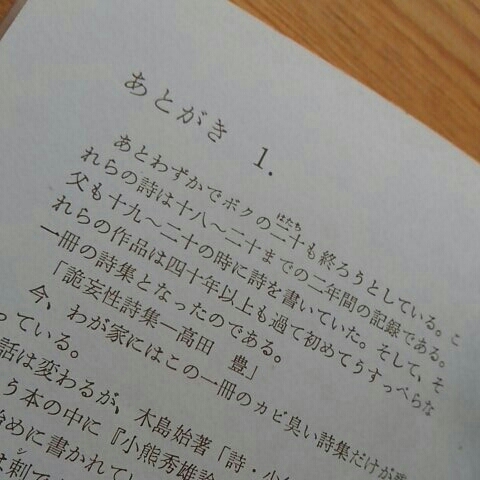 あとがき 1.
あとわずかでボクの二十も終ろうとしている。こ
はたち
れらの詩は十八〜二十までの二年間の記録である。
父も十九〜二十の時に詩を書いていた。そして、そ
れらの作品は四十年以上も過て初めてうすっぺらな
一冊の詩集となったのである。
「詭妄性詩集―高田 豊」
今、わが家にはこの一冊のカビ臭い詩集だけが
っている。
話は変わるが、木島始著「詩・小
う本の中に『小熊秀雄論
始めに書かれて
は刺で
シ